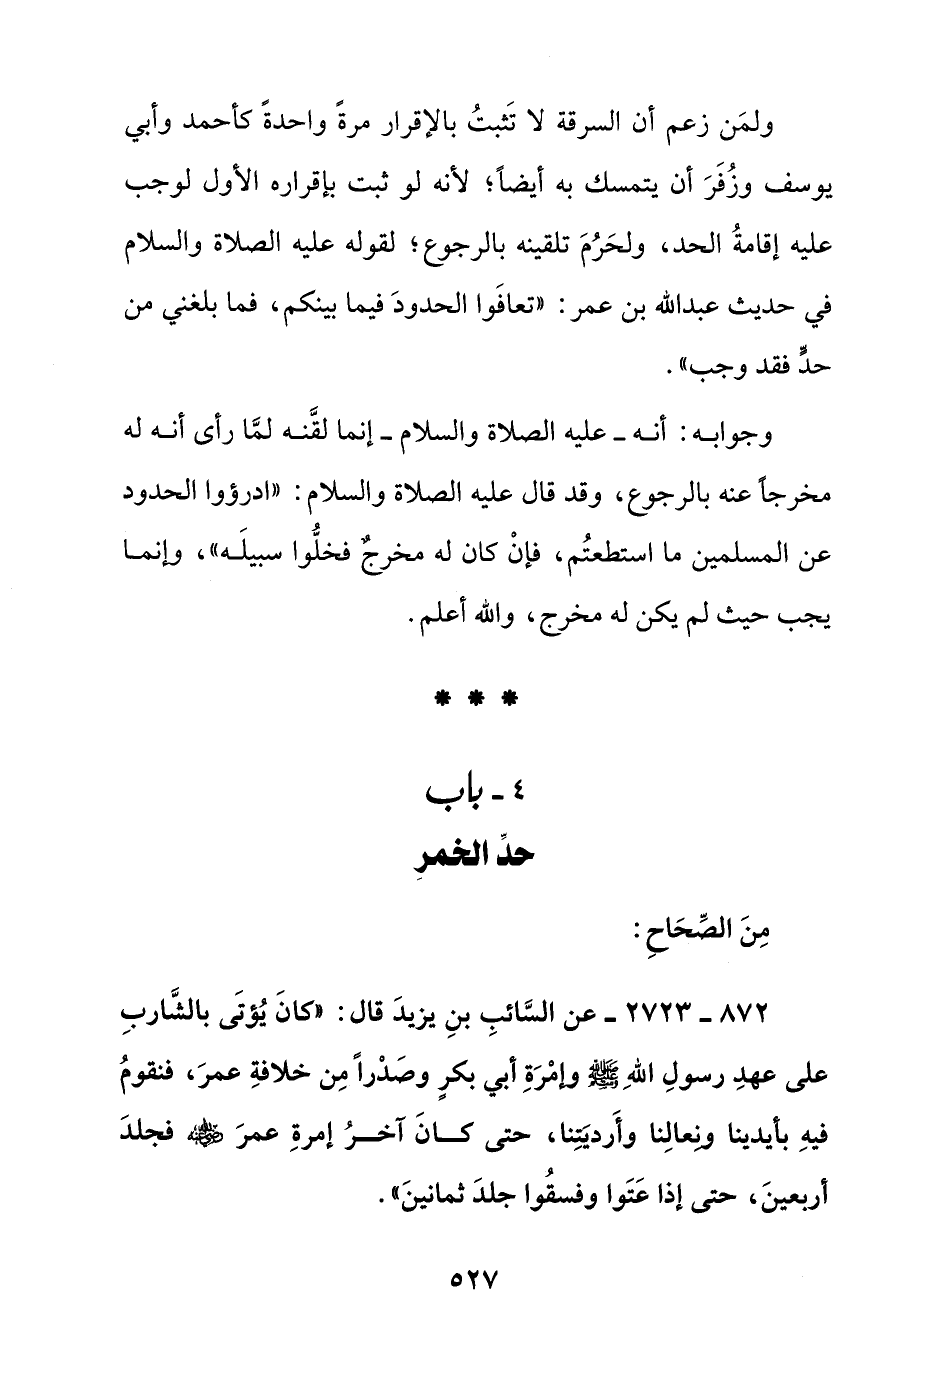 ولمَن زعم أن السرقة لا تَثبتُ بالإقرار مرةً واحدةً كأحمد وأبي
يوسف وزُفَرَ أن يتمسك به أيضاً؛ لأنه لو ثبت بإقراره الأول لوجب
عليه إقامةُ الحد، ولحَرُمَ تلقينه بالرجوع؛ لقوله عليه الصلاة والسلام
في حديث عبدالله بن عمر: «تعافَوا الحدودَ فيما بينكم، فما بلغني من
حدٍّ فقد وجب».
وجوابه: أنه ـ عليه الصلاة والسلام ـ إنما لقَّنه لمَّا رأى أنه له
مخرجاً عنه بالرجوع، وقد قال عليه الصلاة والسلام: «ادرؤوا الحدود
عن المسلمين ما استطعتُم، فإنْ كان له مخرجٌ فخلُّوا سبيلَه»، وإنما
يجب حيث لم يكن له مخرج، والله أعلم.
* * *
٤ ـ باب
حدِّ الخمرِ
مِنَ الصِّحَاحِ:
٨٧٢ ـ ٢٧٢٣ ـ عن السَّائبِ بنِ يزيدَ قال: «كانَ يُؤتَى بالشَّاربِ
على عهدِ رسولِ اللهِ ﷺ وإمْرَةِ أبي بكرٍ وصَدْراً مِن خلافةِ عمرَ، فنقومُ
فيهِ بأيدينا ونِعالِنا وأَرديَتِنا، حتى كانَ آخرُ إمرةِ عمرَ ﷺ فجلدَ
أربعينَ، حتى إذا عَتَوا وفسقُوا جلدَ ثمانينَ».
٥٢٧